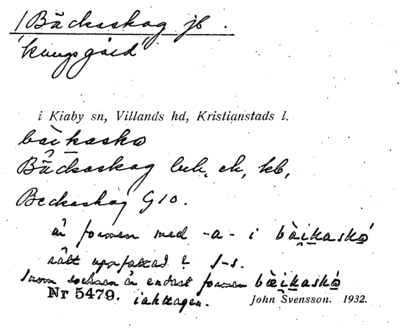 /Bäckaskog js.
'kungsgård'
i Kiaby sn, Villands hd, Kristianstads l.
bäikasko
Bäckaskog
Beckaskog G10.
är formen med -a- i bäikaskó
rätt uppfattad?
socknen är endast formen bäikaskó
Nr 5479. iakttagen. John Svensson. 1932.